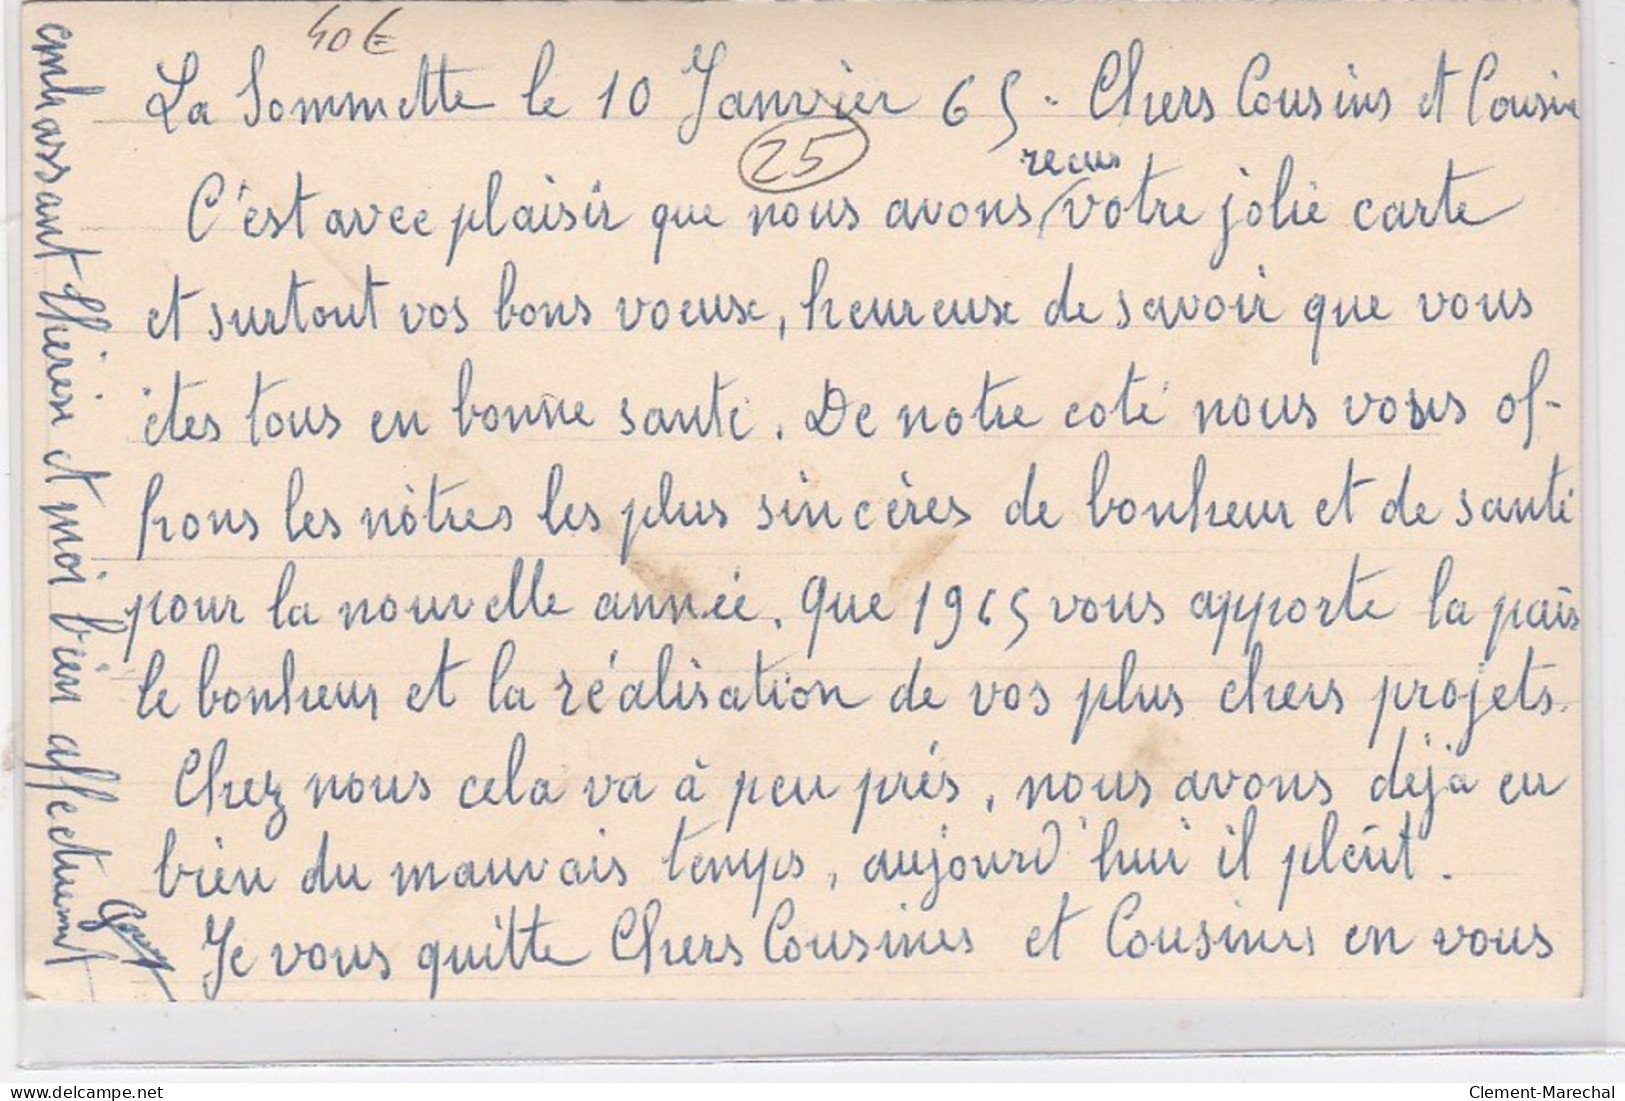 40 €
La Sommette le 10 Janvier 65 - Chers Cousins et Cousin
25
reçus
C'est avec plaisir que nous avons votre jolie carte
et surtout vos bons voeux, heureux de savoir que vous
êtes tous en bonne santé. De notre coté nous vous of-
frons les nôtres les plus sincères de bonheur et de santé
pour la nouvelle année. Que 1965 vous apporte la paix
le bonheur et la réalisation de vos plus chers projets.
Chez nous cela va à peu près, nous avons déjà eu
bien du mauvais temps, aujourd'hui il pleut.
Je vous quitte Chers Cousines et Cousines en vous
embrassant Thérèse et moi bien affectueusmt
delcampe.net
Clement-Marechal